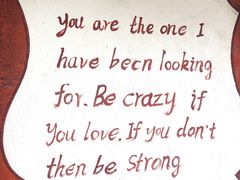 you are the one I
have been looking
for. Be crazy if
you love. If you don't
then be strong